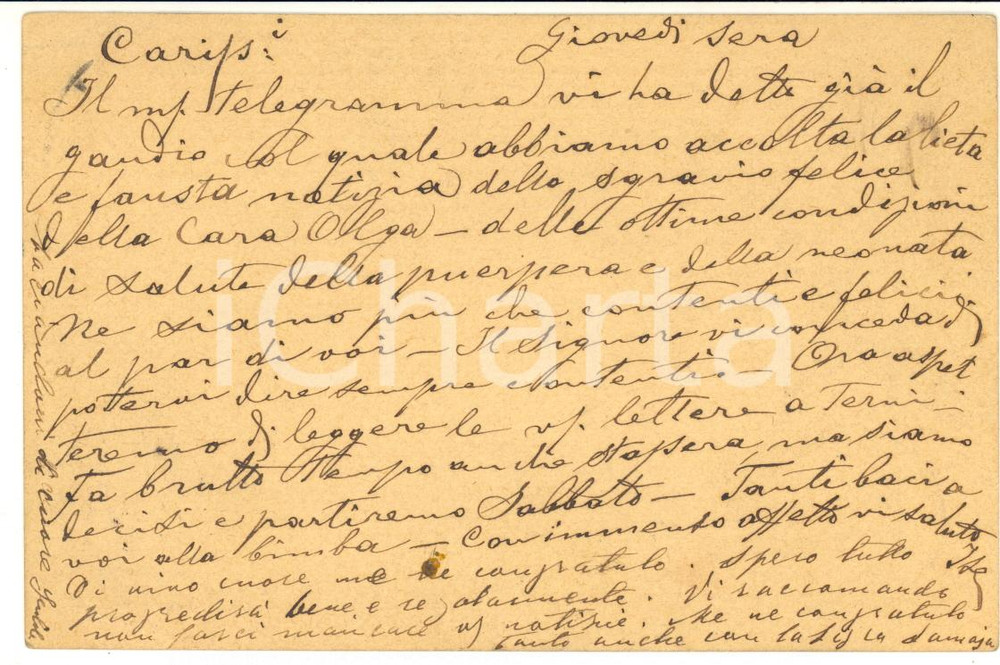 Giovedi sera
Cariss:i
Il mf. telegramma vi ha detto già il
gaudio col quale abbiamo accolta la lieta
e fausta notizia dello sgravio felice
della Cara Olga — delle ottime condizioni
di salute della puerpera e della neonata
Ne siamo più che contenti e felici
al par di voi — Il Signore vi conceda di
potervi dire sempre contenti — Ora aspet
teremo di leggere le vs. lettere a Terni —
Fa brutto tempo anche stasera, ma siamo
decisi e partiremo Sabbato — Tanti baci a
voi alla bimba — Con immenso affetto vi saluto
Di vivo cuore me ne congratulo. Spero tutto
progredisà bene e regolarmente. Vi raccomando
non farci mancare vs notizie. Me ne congratulo
tanto anche con la Sigra
di cuore
iCharta